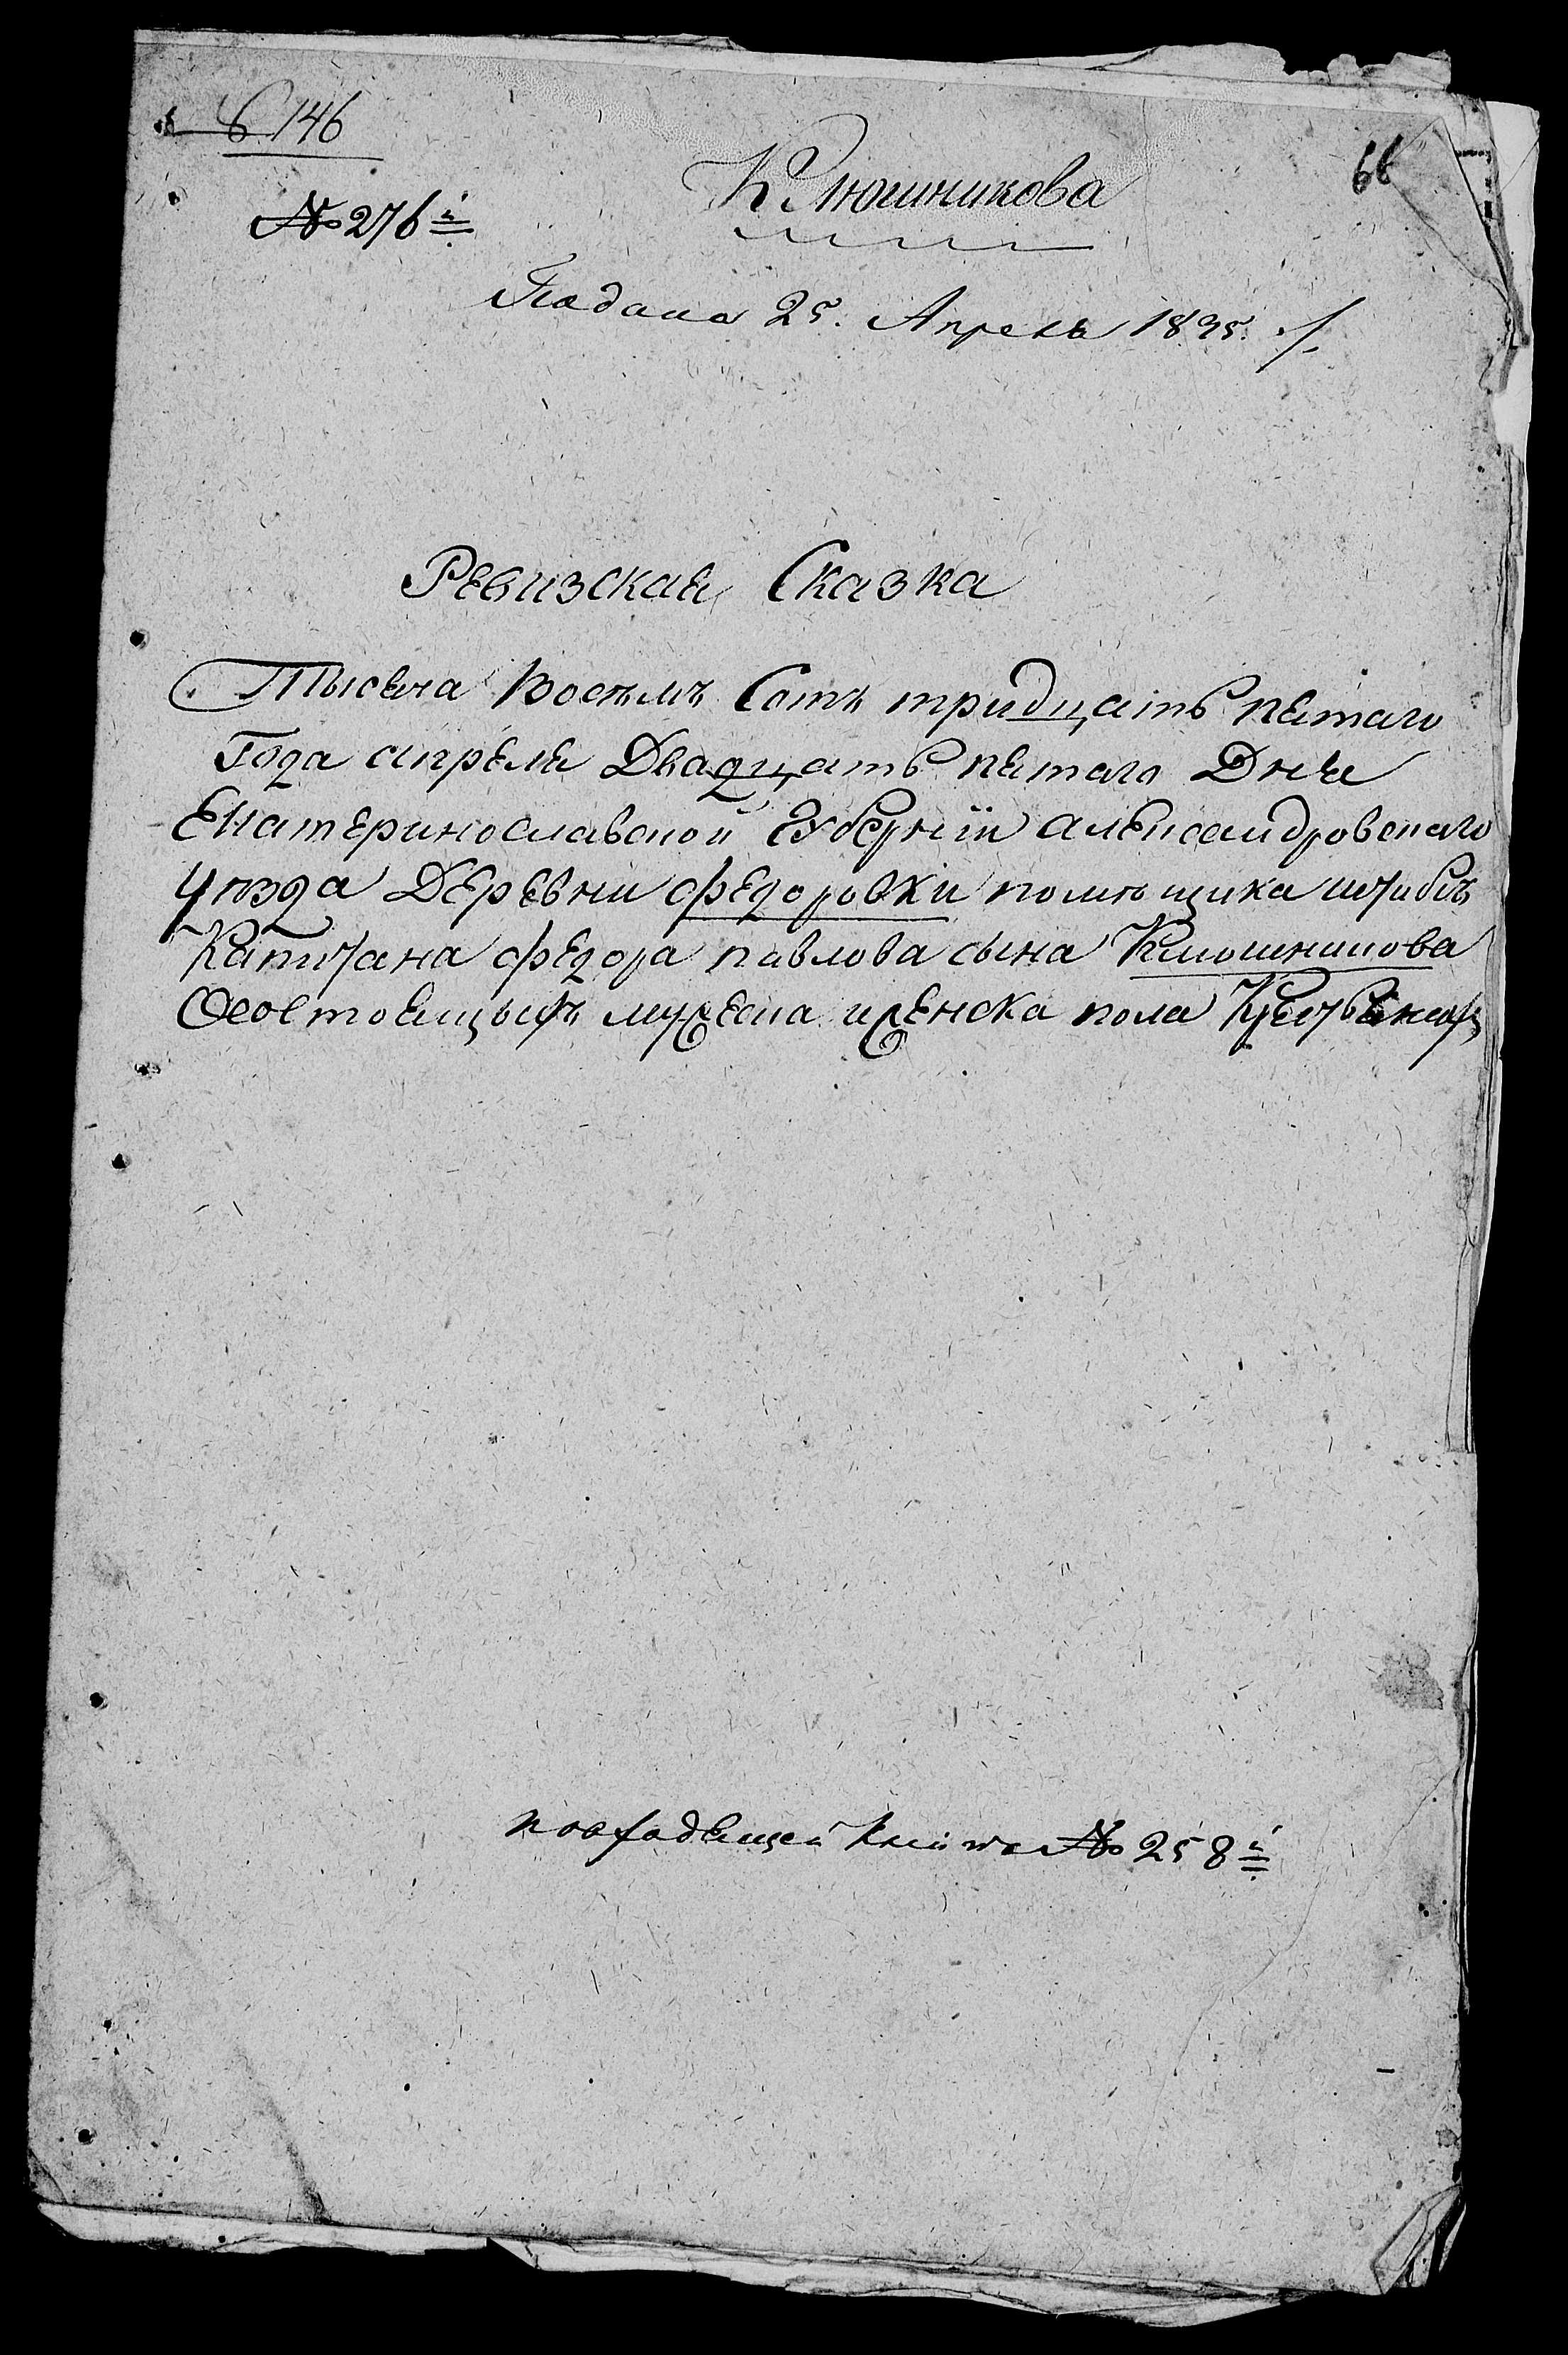 6 146
66
№ 276й
Клюшникова
Подана 25. Апреля 1835.
Ревизская Сказка
Тысеча Восемъ Сотъ тридцать пятаго
Года апреля Двадцать пятаго Дня
Екатеринославской Губерніи александровскаго
уезда Деревни федоровки помещика штабсъ
Капитана федора павлова сына Клюшникова
Осостоящыхъ мужеска иженска пола Крестьянахъ
повходящей Книге № 258й